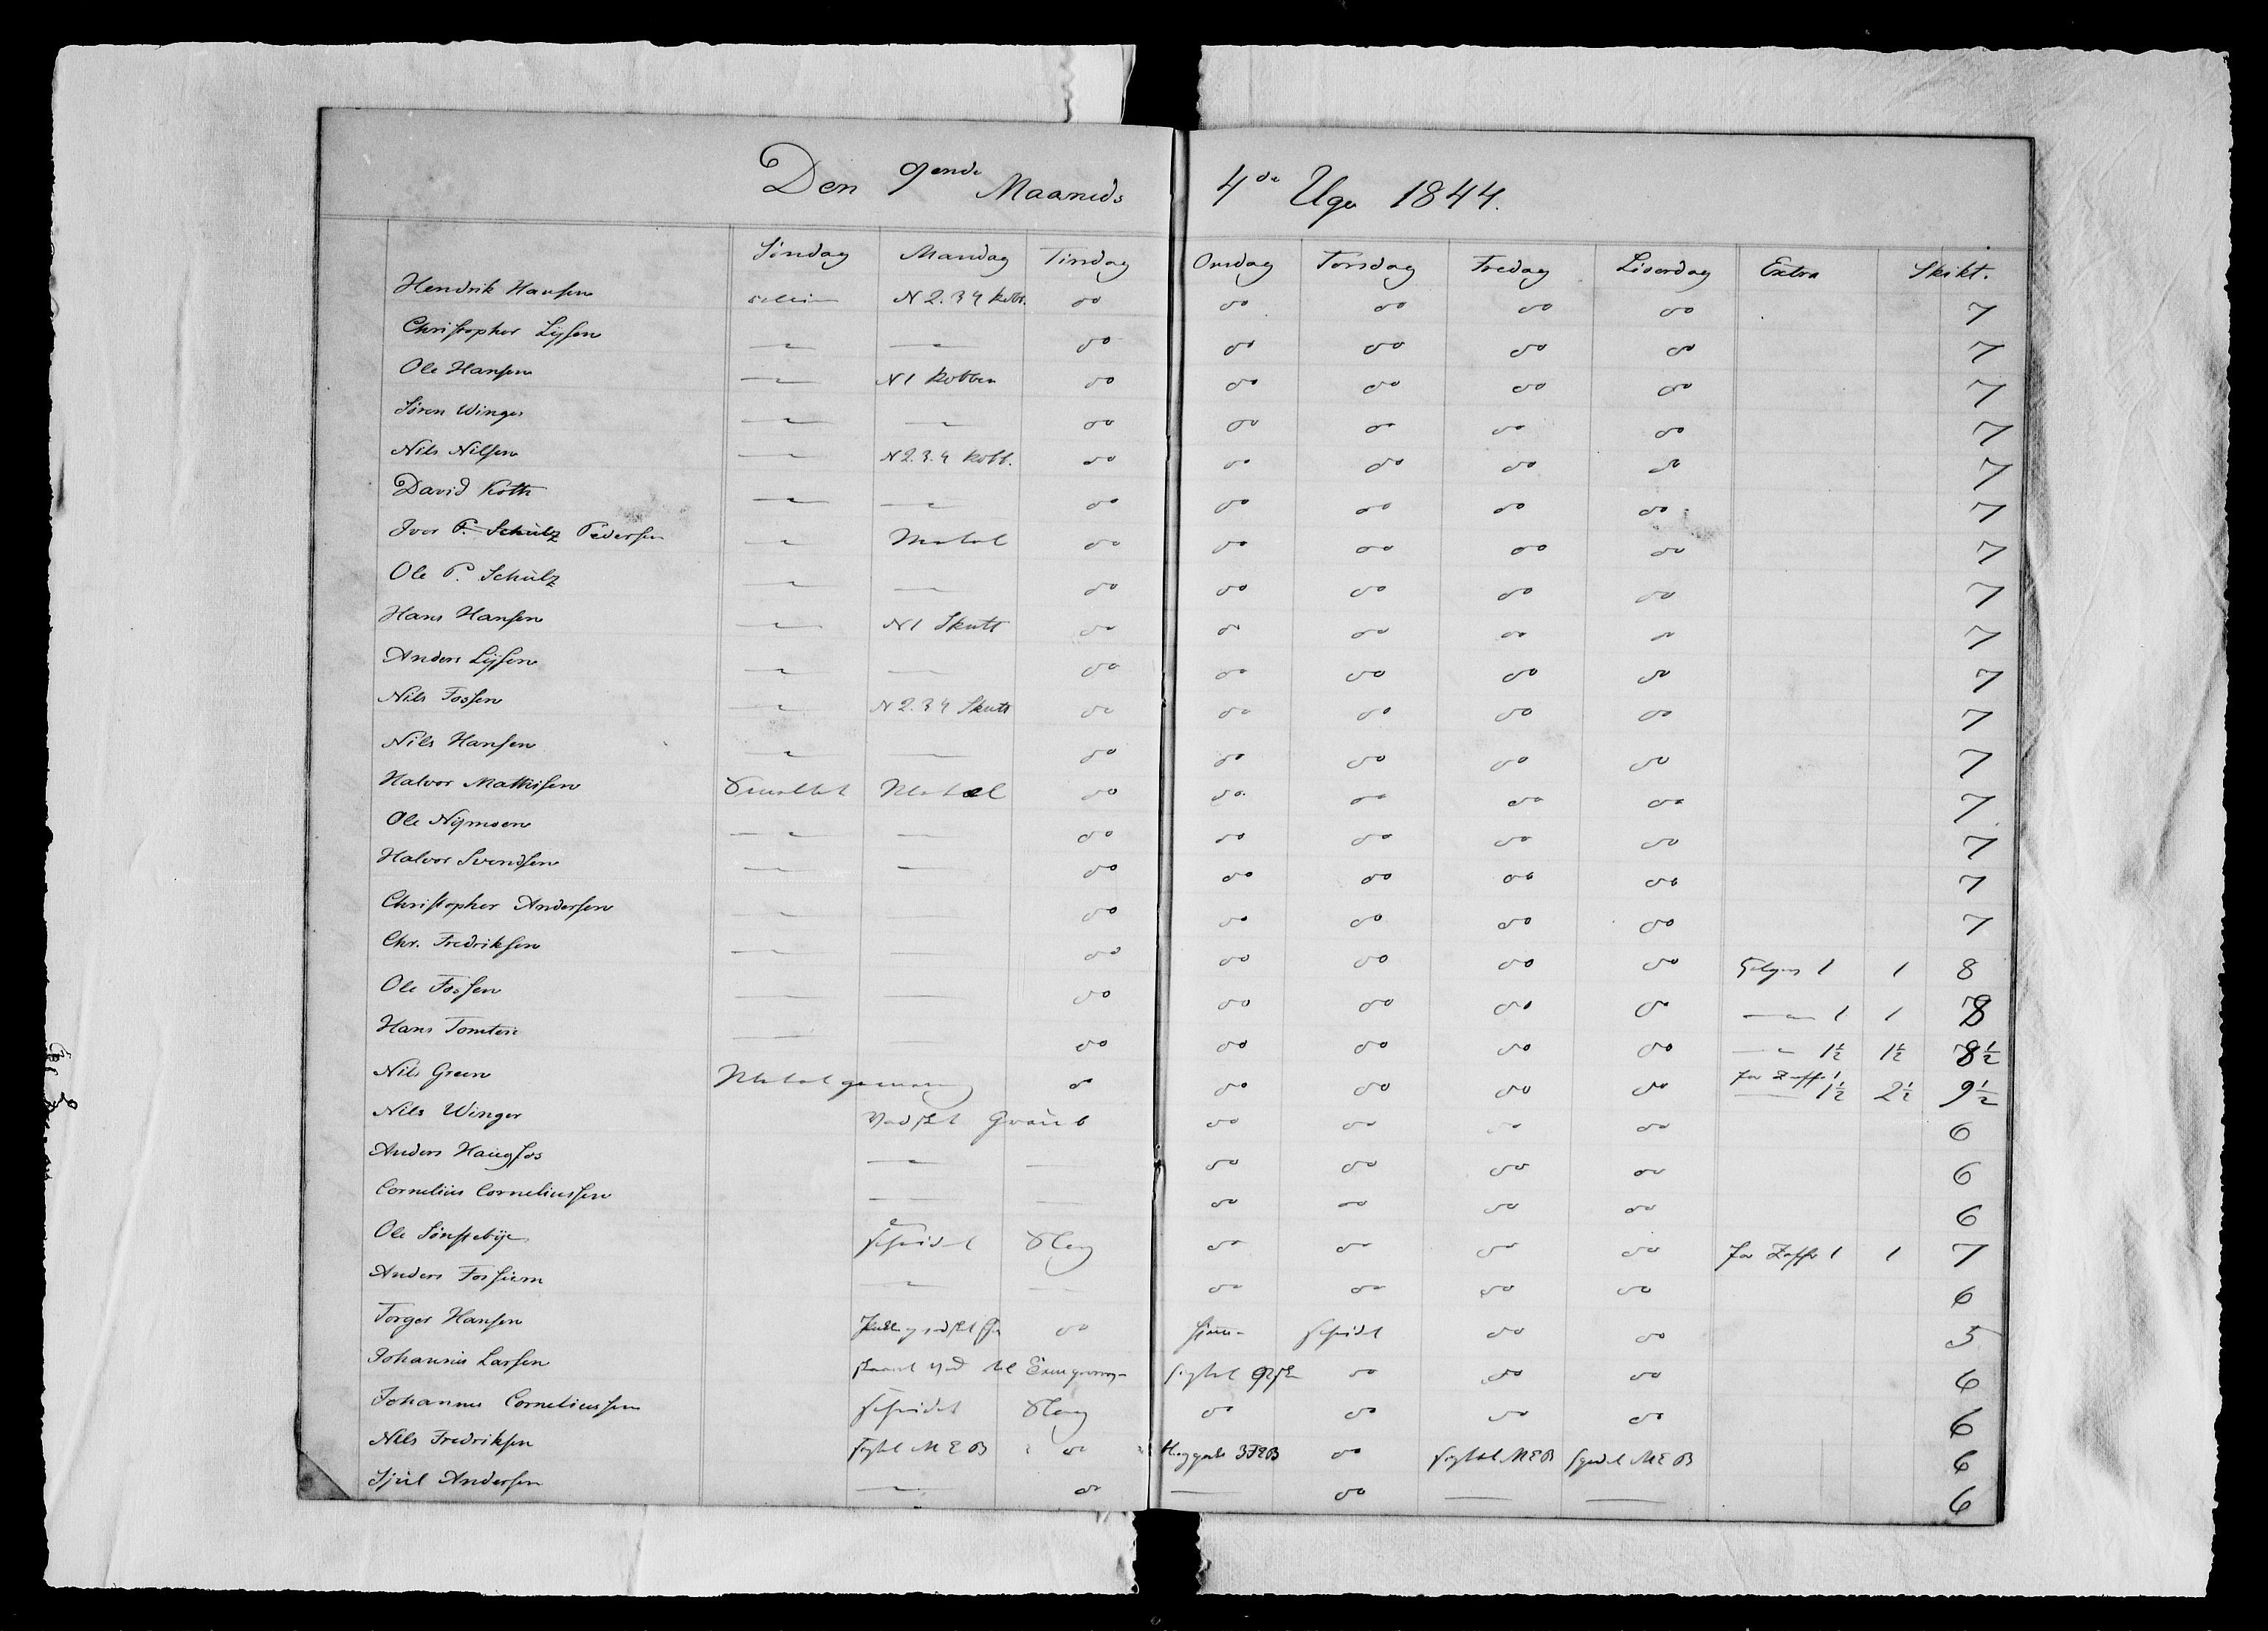 Den 9ende Maaneds 4de Uge 1844.
Søndag Mandag Tirsdag Onsdag Torsdag Fredag Løverdag Extra Skikt.
Hendrik Hansen N 2.3 4 Kobb. do do do do do 7
Christopher Lysen — — do do do do do 7
Ole Hansen — N 1 Kobben do do do do do 7
Søren Winger — — do do do do do 7
Nils Nilsen — N 2.3.4 Kobb. do do do do do 7
David Köth — — do do do do do 7
Iver P. Schülz Pedersen — Metal do do do do do 7
Ole P. Schülz — — do do do do do 7
Hans Hansen — N 1 Skutt do do do do do 7
Anders Lysen — — do do do do do 7
Nils Fossen — N 2.3 4 Skutt do do do do do 7
Nils Hansen — — do do do do do 7
Halvor Mathisen Smeltet Metal do do do do do 7
Ole Nymoen — — do do do do do 7
Halvor Svendsen — — do do do do do 7
Christopher Andersen — — do do do do do 7
Chr. Fredriksen — — do do do do do 1 1 8
Ole Fossen — — do do do do do — 1 1 8
Hans Tomter — — do do do do do — 1½ 1½ 8½
Nils Green do do do do do for Zaffer 1 — 1½ 2½ 9½
Nils Winger Vadsket Graub do do do do 6
Anders Haugfos — — do do do do 6
Cornelius Corneliussen — — do do do do 6
Ole Sønstebye Scheidet Sleg do do do do for Zaffer 1 1 7
Anders Fossum — — do do do do 6
Torger Hansen do Scheidt do do 5
Johannes Larsen Vad til do do do 6
Johannes Corneliussen Scheidet Sleg do do do do 6
Nils Fredriksen Sigtet M E B do do Sigtet M E B M E B 6
Sjul Andersen — do — do — — 6